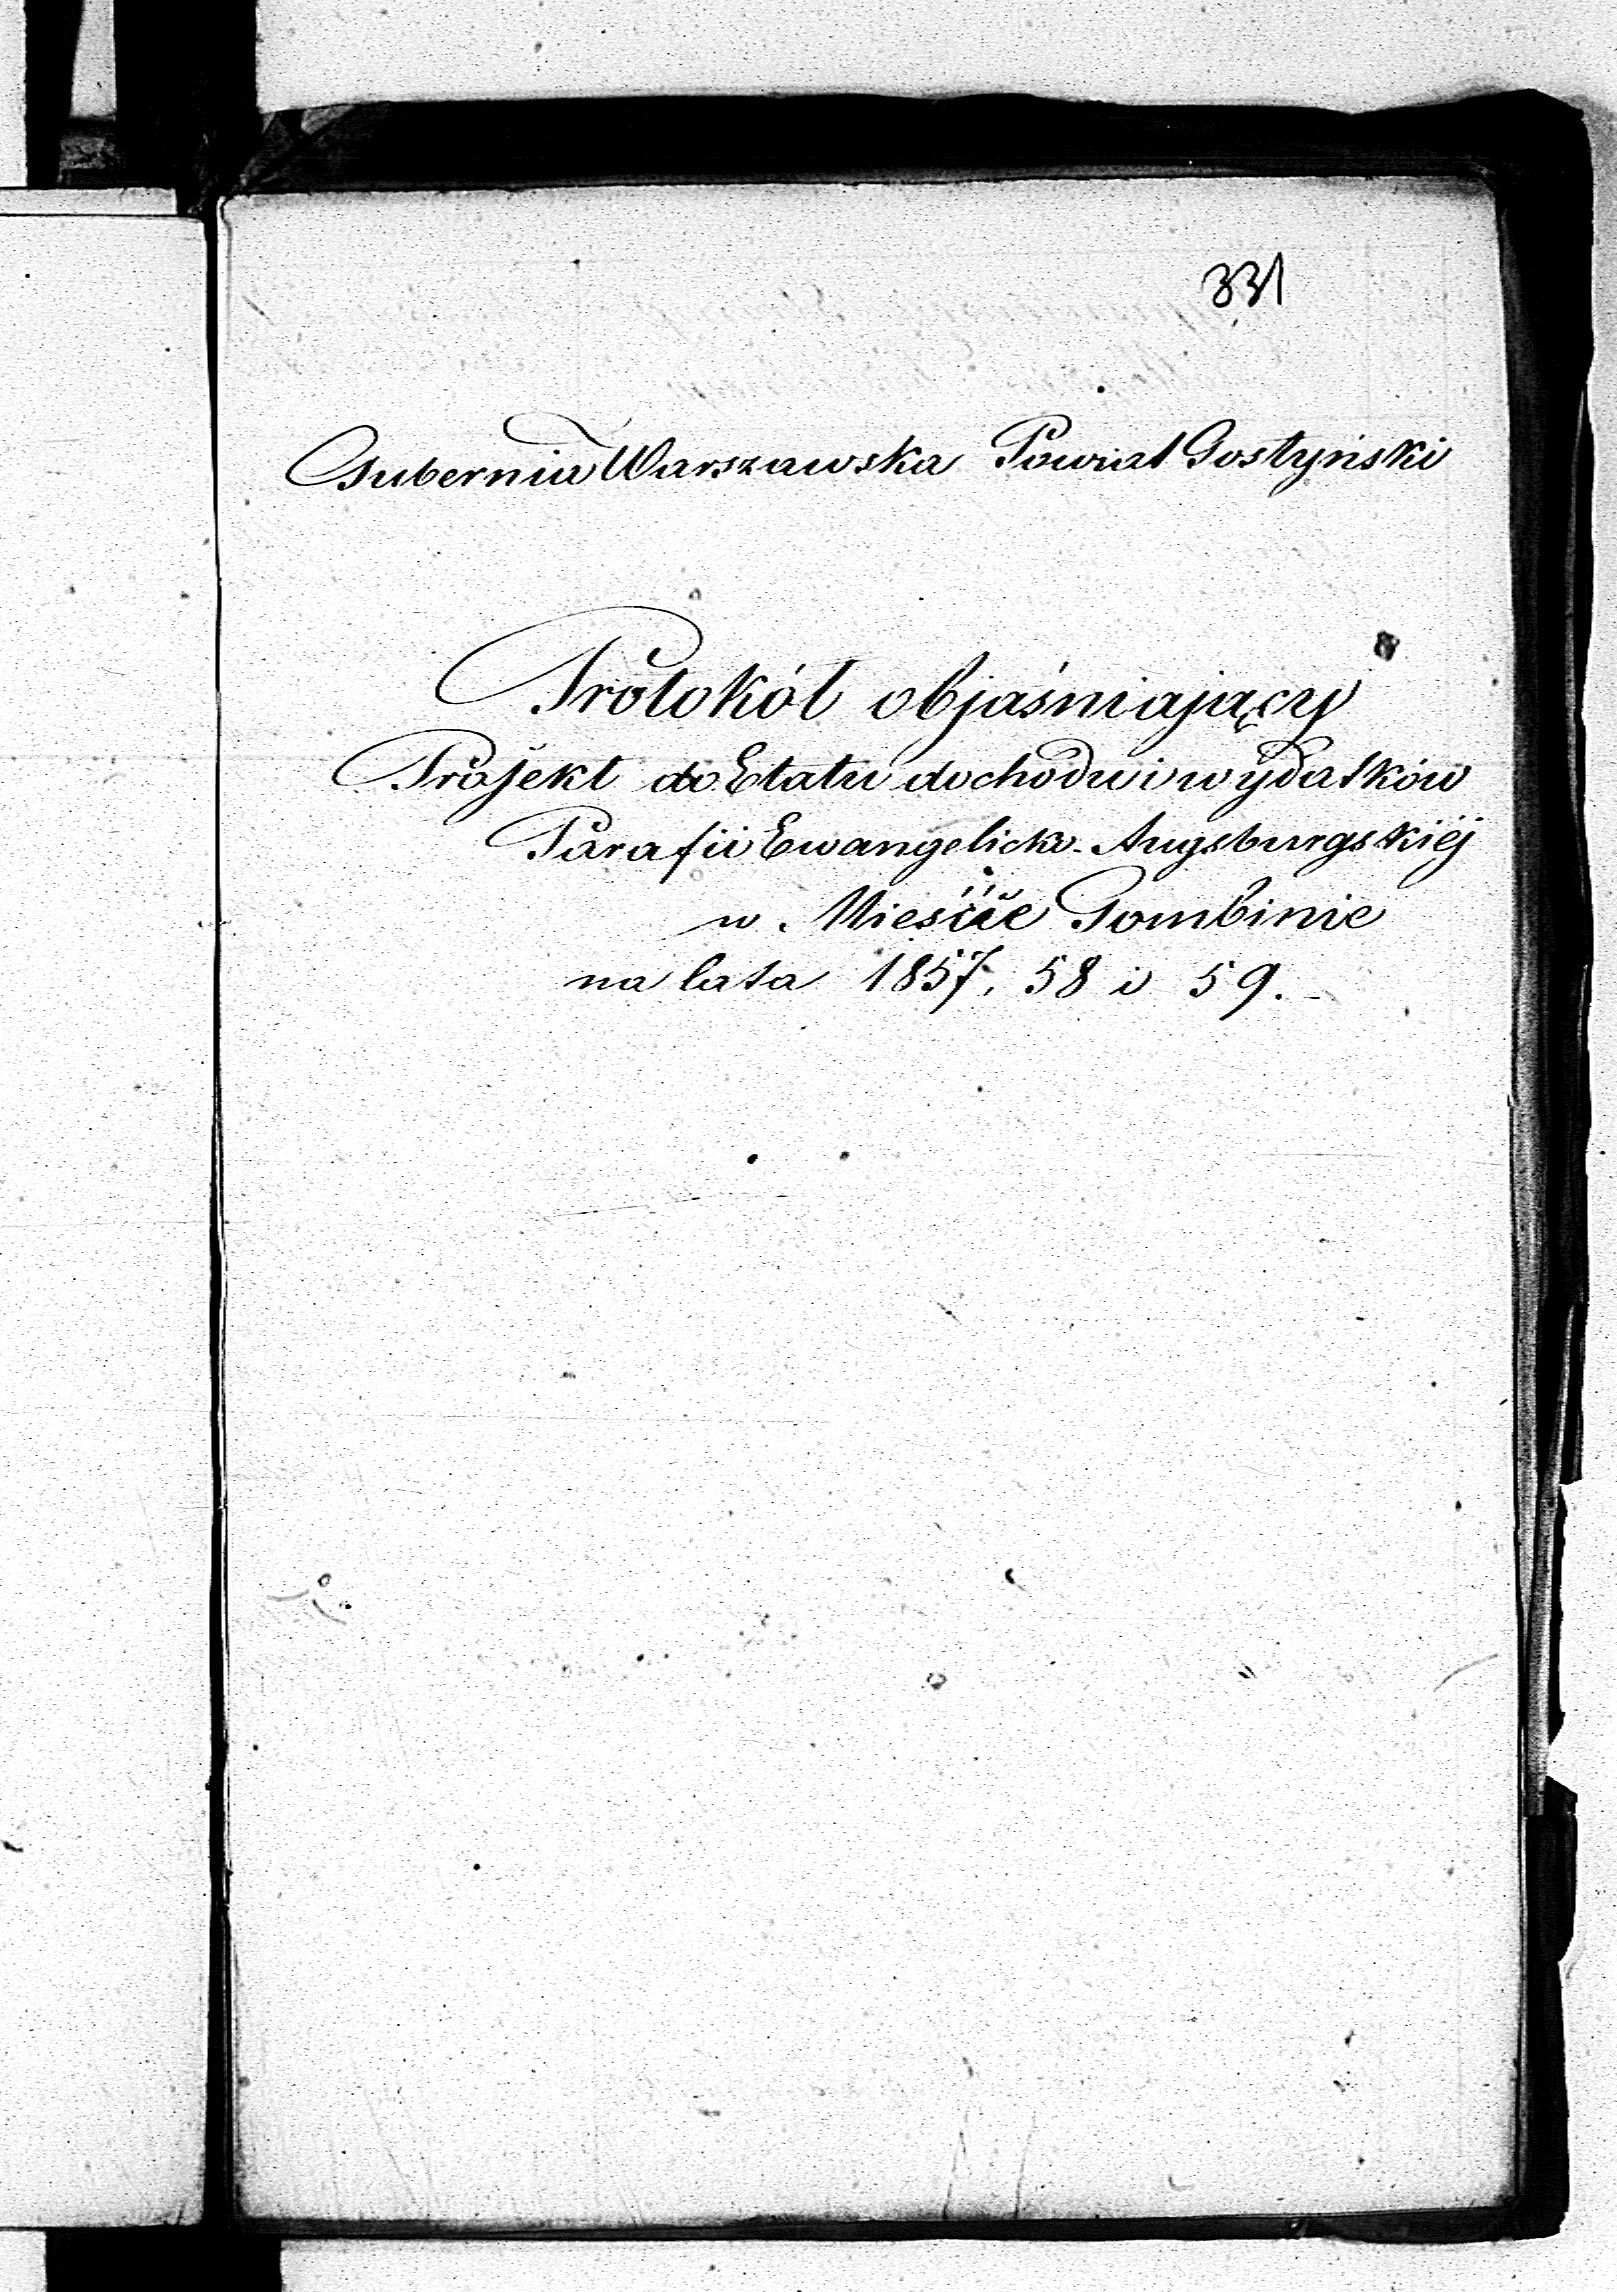 331
Gubernia Warszawska Powiat Gostyński
Protokół objaśniający
Projekt do Etatu dochodu i wydatków
Parafii Ewangelicko-Augsburgskiéj
w Mieście Gombinie
na lata 1857, 58 i 59.